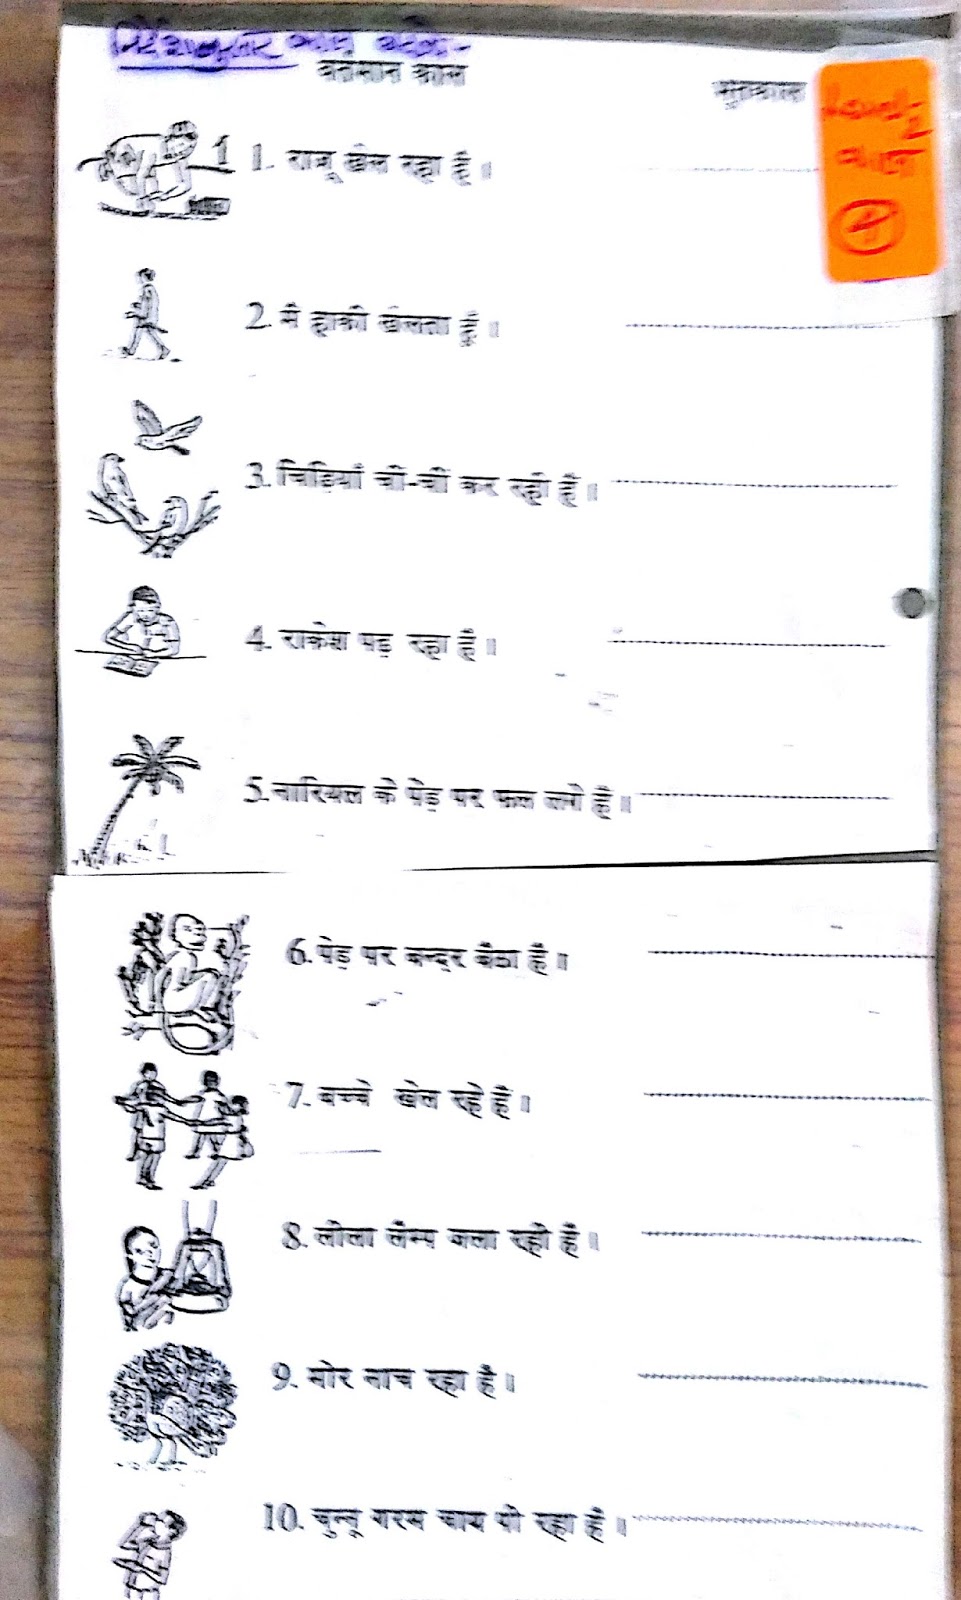 निर्देशानुसार काल बदलो-
वर्तमान काल
भूतकाल
काल
4
1 1. राजू खेल रहा है।
2. मै हाकी खेलता हूँ।
3. चिड़ियाँ चीं-चीं कर रही हैं।
4. राकेश पढ़ रहा है।
5. नारियल के पेड़ पर फल लगे हैं।
6. पेड़ पर बन्दर बैठा है।
7. बच्चे खेल रहे हैं।
8. लीला लैम्प जला रही है।
9. मोर नाच रहा है।
10. चुन्नू गरम चाय पी रहा है।